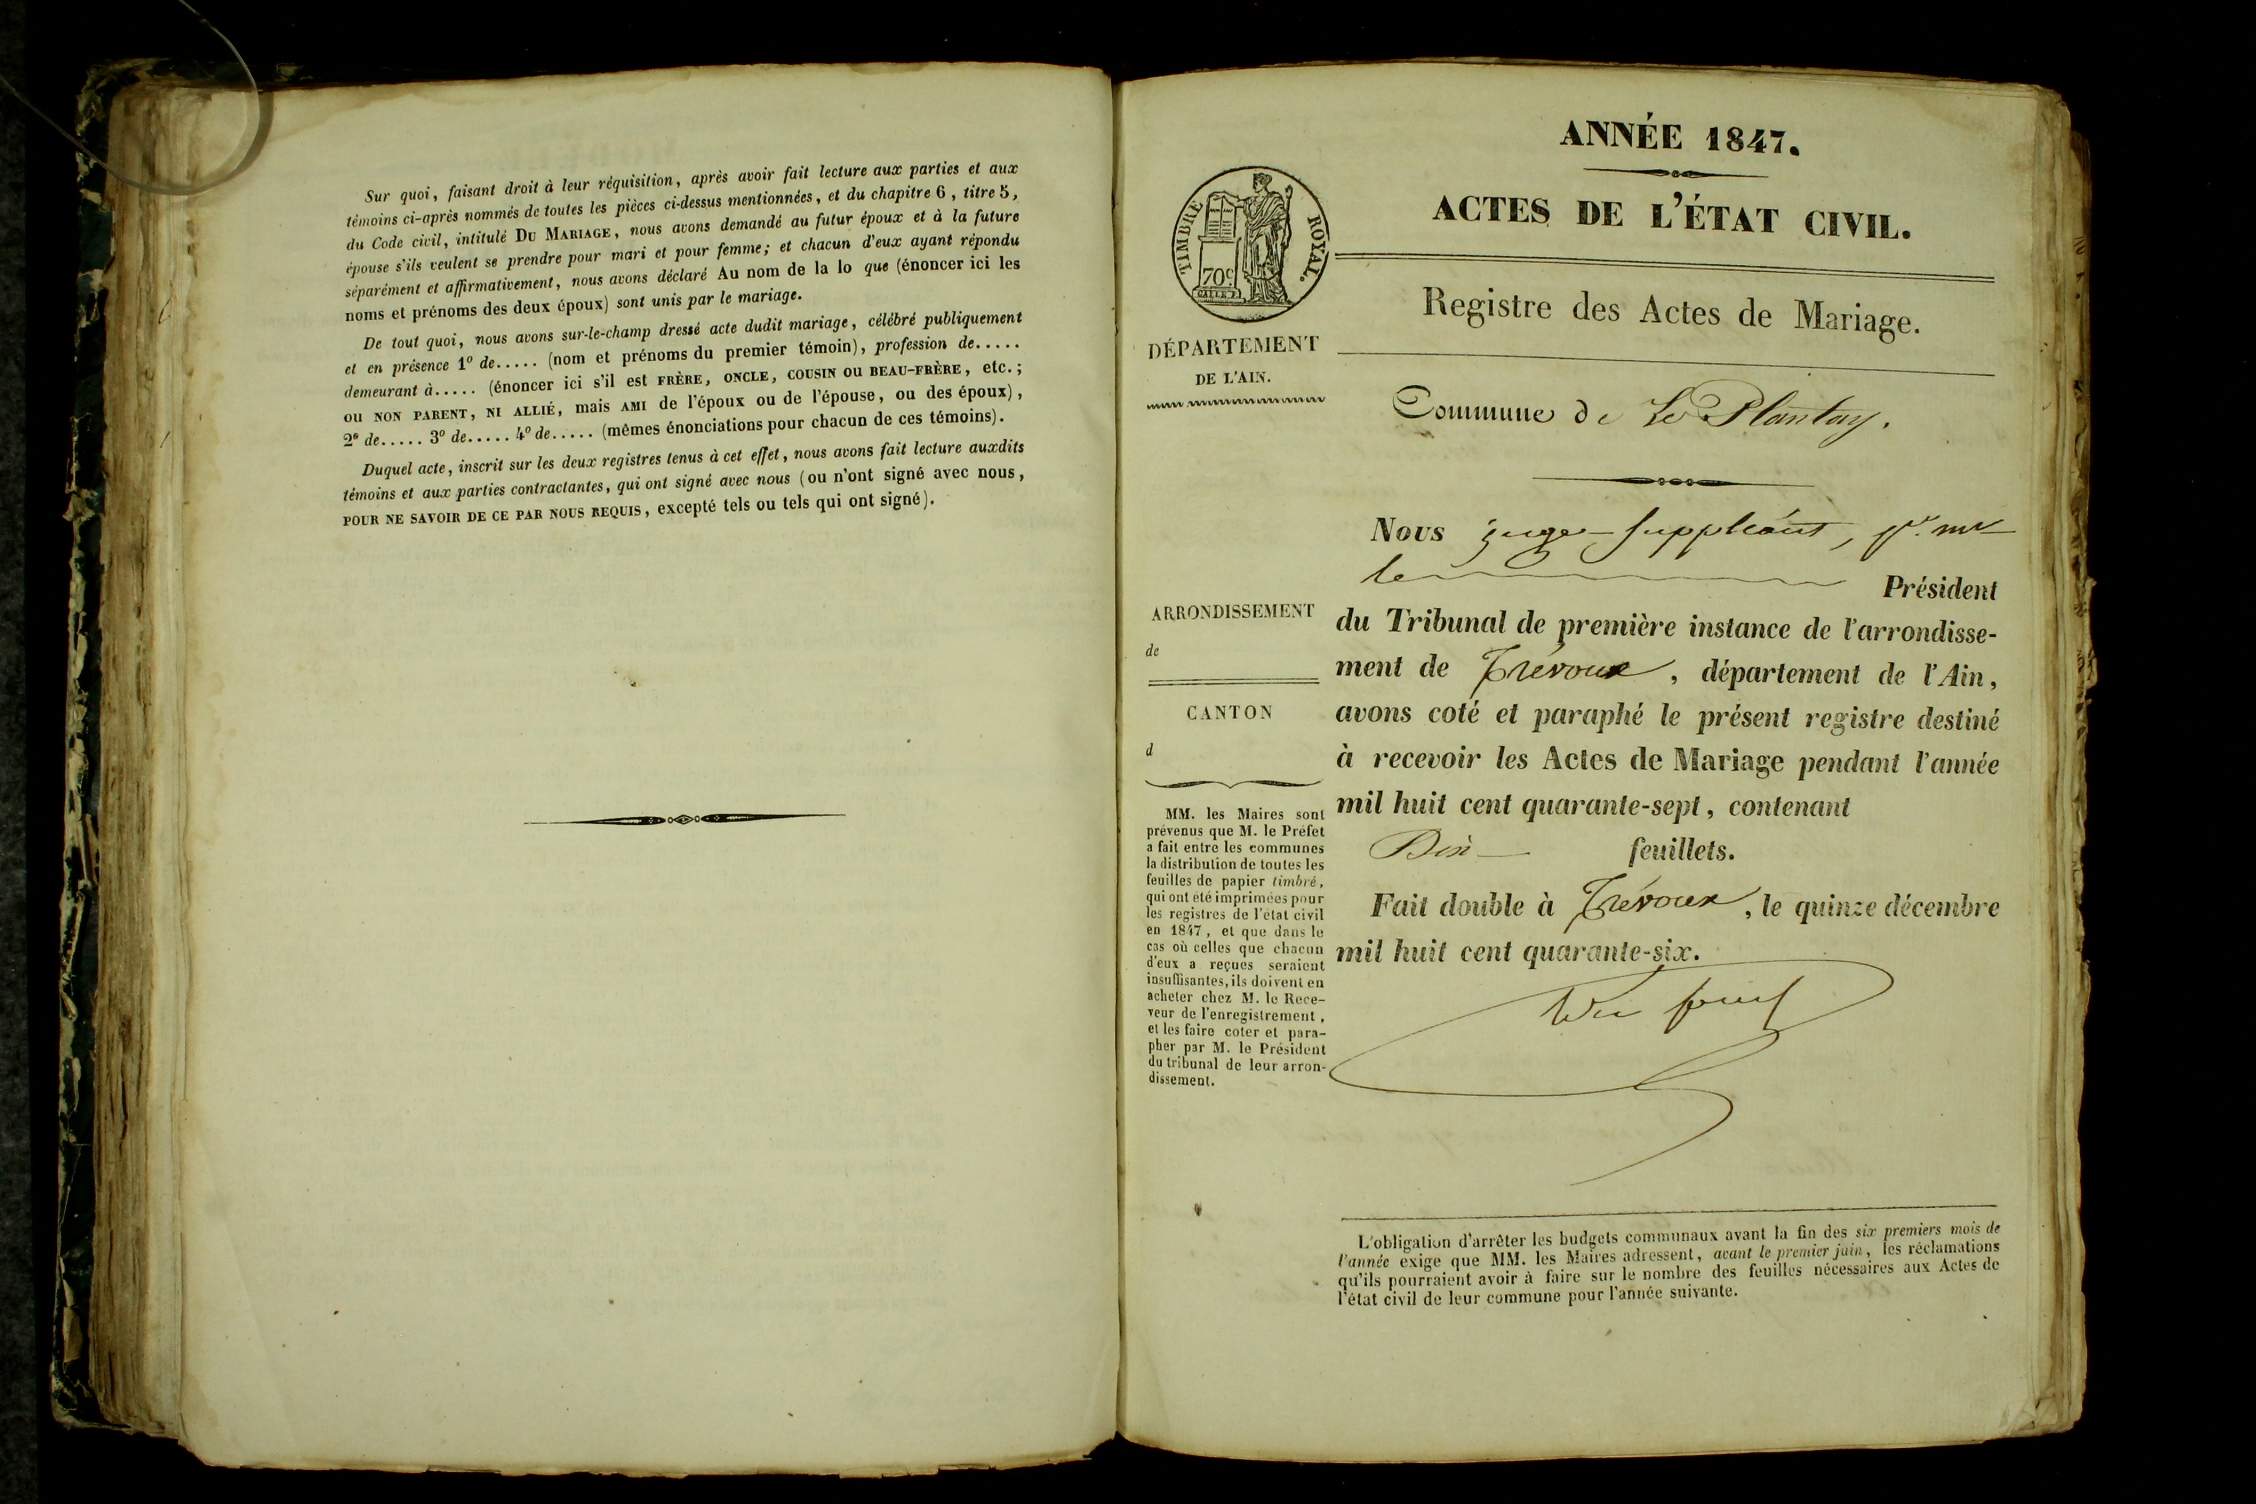 Sur quoi, faisant droit à leur réquisition, après avoir fait lecture aux parties et aux
témoins ci-après nommés de toutes les pièces ci-dessus mentionnées, et du chapitre 6, titre 5,
du Code civil, intitulé DU MARIAGE, nous avons demandé au futur époux et à la future
épouse s'ils veulent se prendre pour mari et pour femme; et chacun d'eux ayant répondu
séparément et affirmativement, nous avons déclaré Au nom de la lo que (énoncer ici les
noms et prénoms des deux époux) sont unis par le mariage.
De tout quoi, nous avons sur-le-champ dressé acte dudit mariage, célébré publiquement
et en présence 1º de..... (nom et prénoms du premier témoin), profession de.....
demeurant à..... (énoncer ici s'il est FRÈRE, ONCLE, COUSIN OU BEAU-FRÈRE, etc.;
OU NON PARENT, NI ALLIÉ, mais AMI de l'époux ou de l'épouse, ou des époux),
2º de..... 3º de..... 4º de..... (mêmes énonciations pour chacun de ces témoins).
Duquel acte, inscrit sur les deux registres tenus à cet effet, nous avons fait lecture auxdits
témoins et aux parties contractantes, qui ont signé avec nous (ou n'ont signé avec nous,
POUR NE SAVOIR DE CE PAR NOUS REQUIS, excepté tels ou tels qui ont signé).
ANNÉE 1847.
ACTES DE L'ÉTAT CIVIL.
TIMBRE ROYAL.
70c
Registre des Actes de Mariage.
DÉPARTEMENT
DE L'AIN.
Commune de Le Plantay.
Nous juge-suppléant, pr. mr
le Président
du Tribunal de première instance de l'arrondisse-
ment de Trévoux, département de l'Ain,
avons coté et paraphé le présent registre destiné
à recevoir les Actes de Mariage pendant l'année
mil huit cent quarante-sept, contenant
Dix feuillets.
Fait double à Trévoux, le quinze décembre
mil huit cent quarante-six.
ARRONDISSEMENT
de
CANTON
d
MM. les Maires sont
prévenus que M. le Préfet
a fait entre les communes
la distribution de toutes les
feuilles de papier timbré,
qui ont été imprimées pour
les registres de l'état civil
en 1847, et que dans le
cas où celles que chacun
d'eux a reçues seraient
insuffisantes, ils doivent en
acheter chez M. le Rece-
veur de l'enregistrement,
et les faire coter et para-
pher par M. le Président
du tribunal de leur arron-
dissement.
L'obligation d'arrêter les budgets communaux avant la fin des six premiers mois de
l'année exige que MM. les Maires adressent, avant le premier juin, les réclamations
qu'ils pourraient avoir à faire sur le nombre des feuilles nécessaires aux Actes de
l'état civil de leur commune pour l'année suivante.